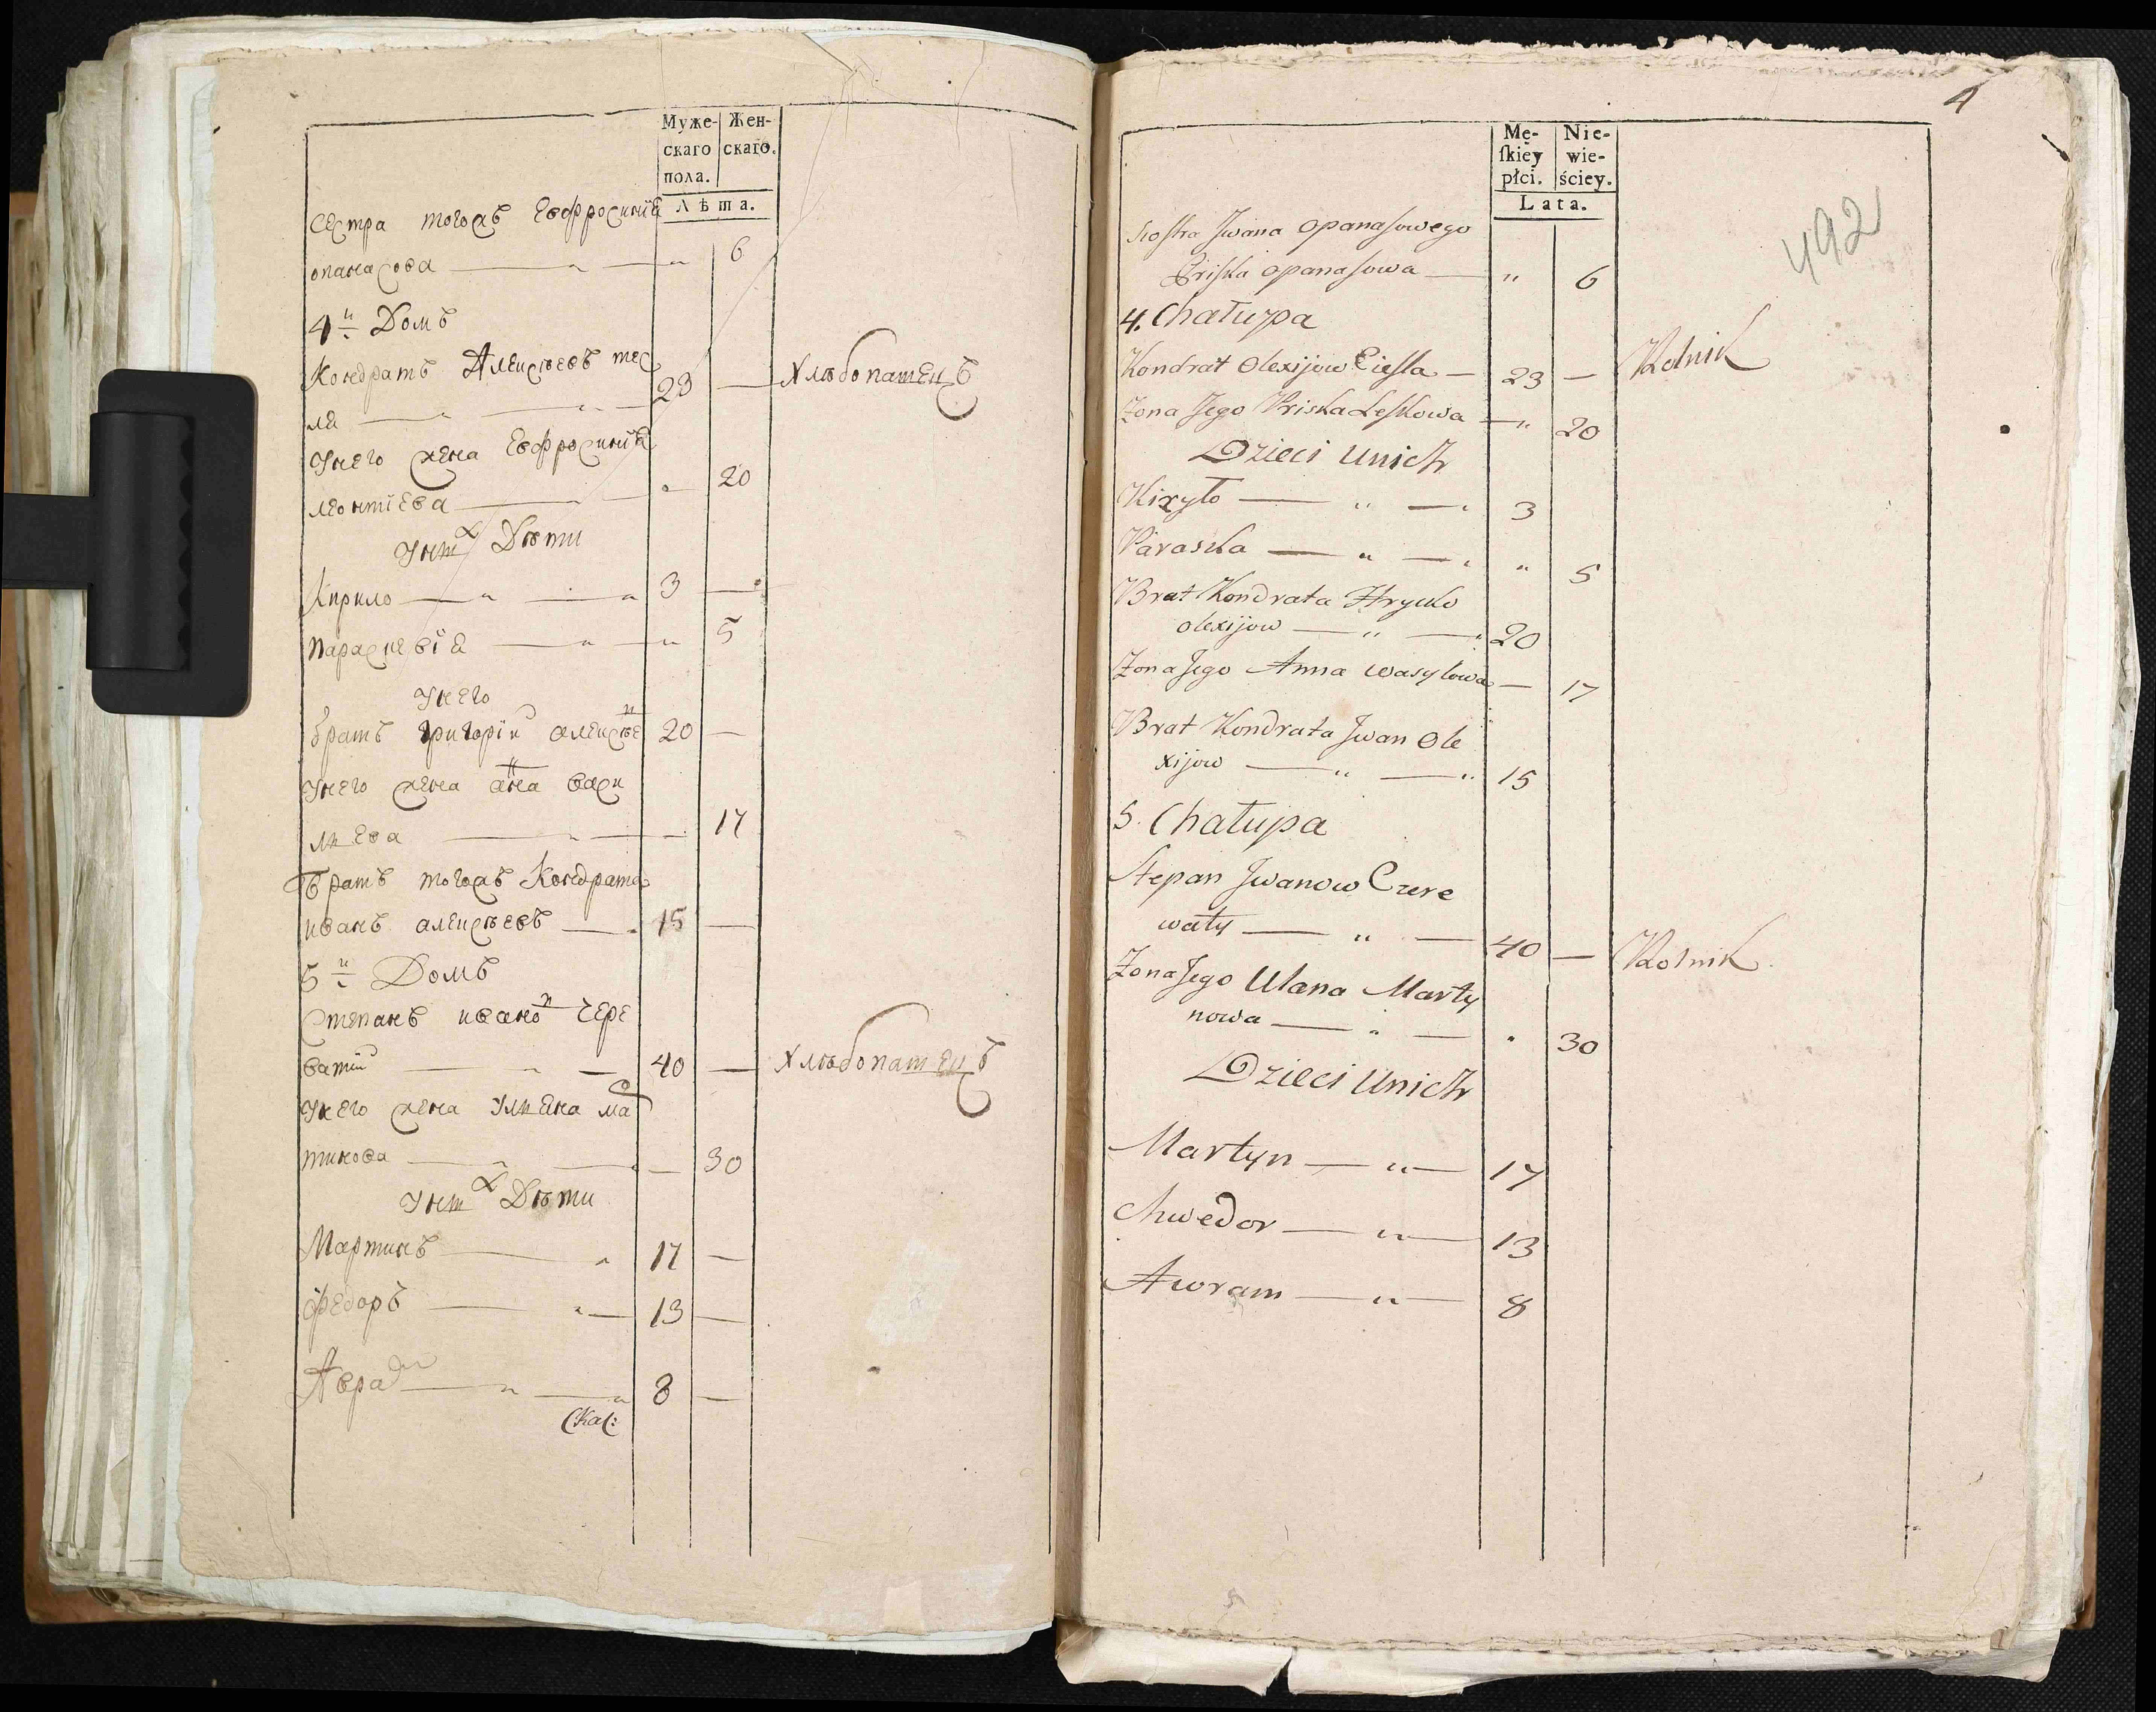 Муже-
скаго
пола.
Жен-
скаго.
Лѣта.
Сестра тогожъ Евфросиніа
опанасова — 6
4й Домъ
Кондратъ Алексѣевъ тес
ля — 23 — Хлѣбопашецъ
Унего жена Евфросиніа
леонтіева — 20
Унихъ Дѣти
Кирило — 3 —
параскевіа — 5
Унего
братъ григорій алексѣе 20 —
Унего жена анна васи
лиева — 17
Братъ тогожъ Кондрата
иванъ алексѣевъ — 15 —
5й Домъ
Степанъ ивановъ Чере
ватий — 40 — Хлѣбопашецъ
Унего жена Улиена мар
тинова — 30
Унихъ Дѣти
Мартинъ — 17 —
федоръ — 13 —
Аврам — 8 —
4
492
Mę-
ſkiey
płci.
Nie-
wie-
ściey.
Lata.
Siostra Jwana Opanasowego
Priska opanasowa — " 6
4. Chałupa
Kondrat Olexijow Ciesla — 23 — Rolnik
Zona Jego Priska Leskowa — " 20
Dzieci Unich
Kiryło — " — 3
Paraska — " — " 5
Brat Kondrata Hrycko
olexijow — " — 20
Zona Jego Anna Wasylowa — 17
Brat Kondrata Jwan Ole
xijow — " — " 15
5. Chałupa
Stepan Jwanow Czere
waty — " — 40 — Rolnik
Zona Jego Ulana Marty
nowa — " — " 30
Dzieci Unich
Martyn — " — 17
Chwedor — " — 13
Awram — " — 8